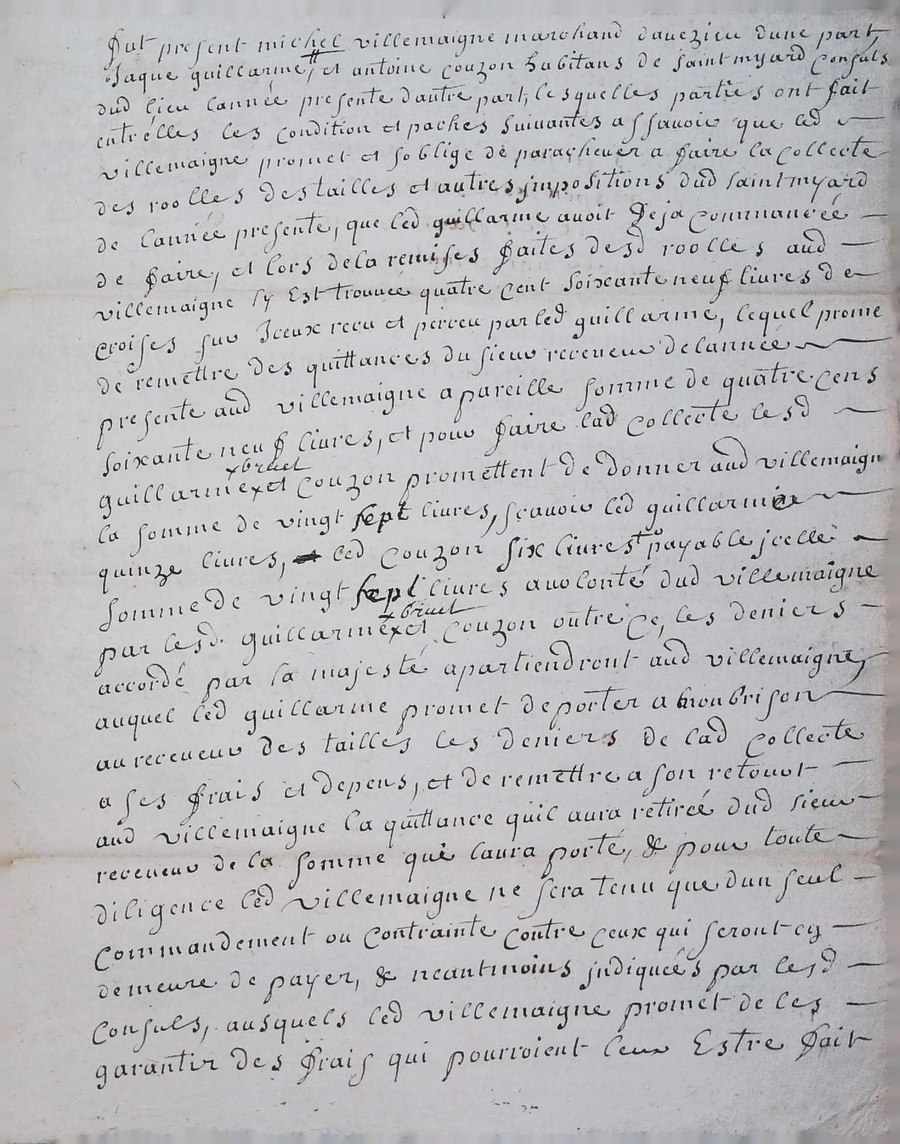 fut present michel villemaigne marchand davezieu dune part
Jaque guillarme, # et antoine couzon habitans de saint myard consuls
dud lieu lannée presente dautre part, lesquelles parties ont fait
entrelles les condition et paches suivantes assavoir que led
villemaigne promet et soblige de parachever a faire la collecte
des roolles destailles et autres jmpositions dud saint myard
de lannée presente, que led guillarme avoit deja commancéé
de faire, et lors dela remises faites desd roolles aud
villemaigne sy Est trouvée quatre cent soixante neuf livres de
croises sur Jceux recu et perceu par led guillarme, lequel prome
de remettre des quittances du sieur receveur delannée
presente aud villemaigne a pareille somme de quatre cens
soixante neuf livres, et pour faire lad collecte lesd
x bruet
guillarme x et couzon promettent de donner aud villemaign
la somme de vingt sept livres, scavoir led guillarme
quinze livres, led couzon six livres payable jcelle
somme de vingt sept livres avolonté dud villemaigne
x bruet
par lesd. guillarme x et couzon outre ce, les deniers
accordé par la majesté apartiendront aud villemaigne,
auquel led guillarme promet deporter a monbrison
au receveur des tailles les deniers de lad collecte
a ses frais et depens, et de remettre a son retourt
aud villemaigne la quittance quil aura retirée dud sieur
receveur de la somme que laura porte, & pour toute
diligence led villemaigne ne sera tenu que dun seul
commandement ou contrainte contre ceux qui seront cy
demeure de payer, & neantmoins jndiquées par lesd
consuls, ausquels led villemaigne promet de les
garantir des frais qui pourroient leur Estre fait